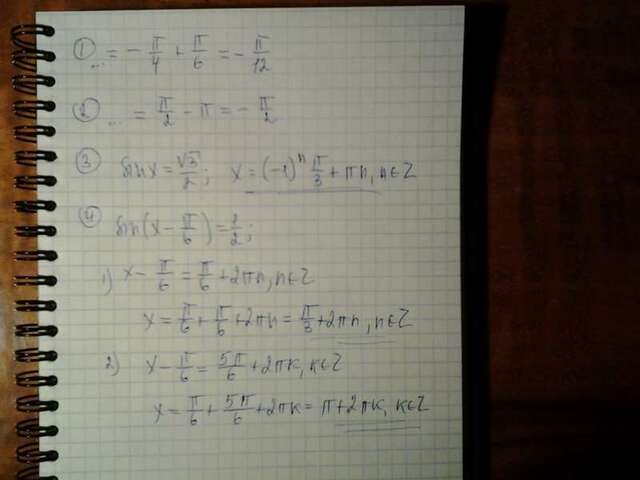 ① ... = - π/4 + π/6 = - π/12
② ... = π/2 - π = - π/2
③ sin x = √3/2; x = (-1)ⁿ π/3 + πn, n∈Z
④ sin(x - π/6) = 1/2;
1) x - π/6 = π/6 + 2πn, n∈Z
x = π/6 + π/6 + 2πn = π/3 + 2πn, n∈Z
2) x - π/6 = 5π/6 + 2πk, k∈Z
x = π/6 + 5π/6 + 2πk = π + 2πk, k∈Z